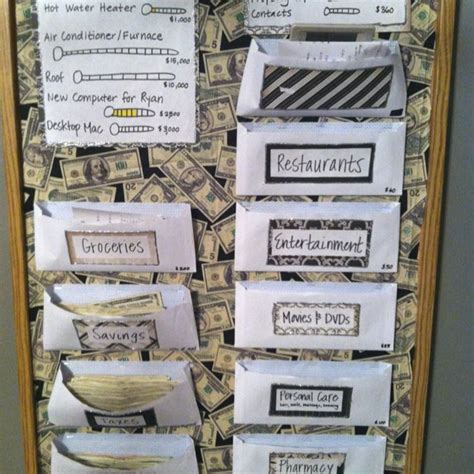 Hot Water Heater
$1,000
Air Conditioner/Furnace
$15,000
Roof
$10,000
New Computer for Ryan
$2,500
Desktop Mac
$3,000
Contacts
$360
Restaurants
Groceries
Entertainment
$50
Savings
Movies & DVDs
Personal Care
Taxes
Pharmacy